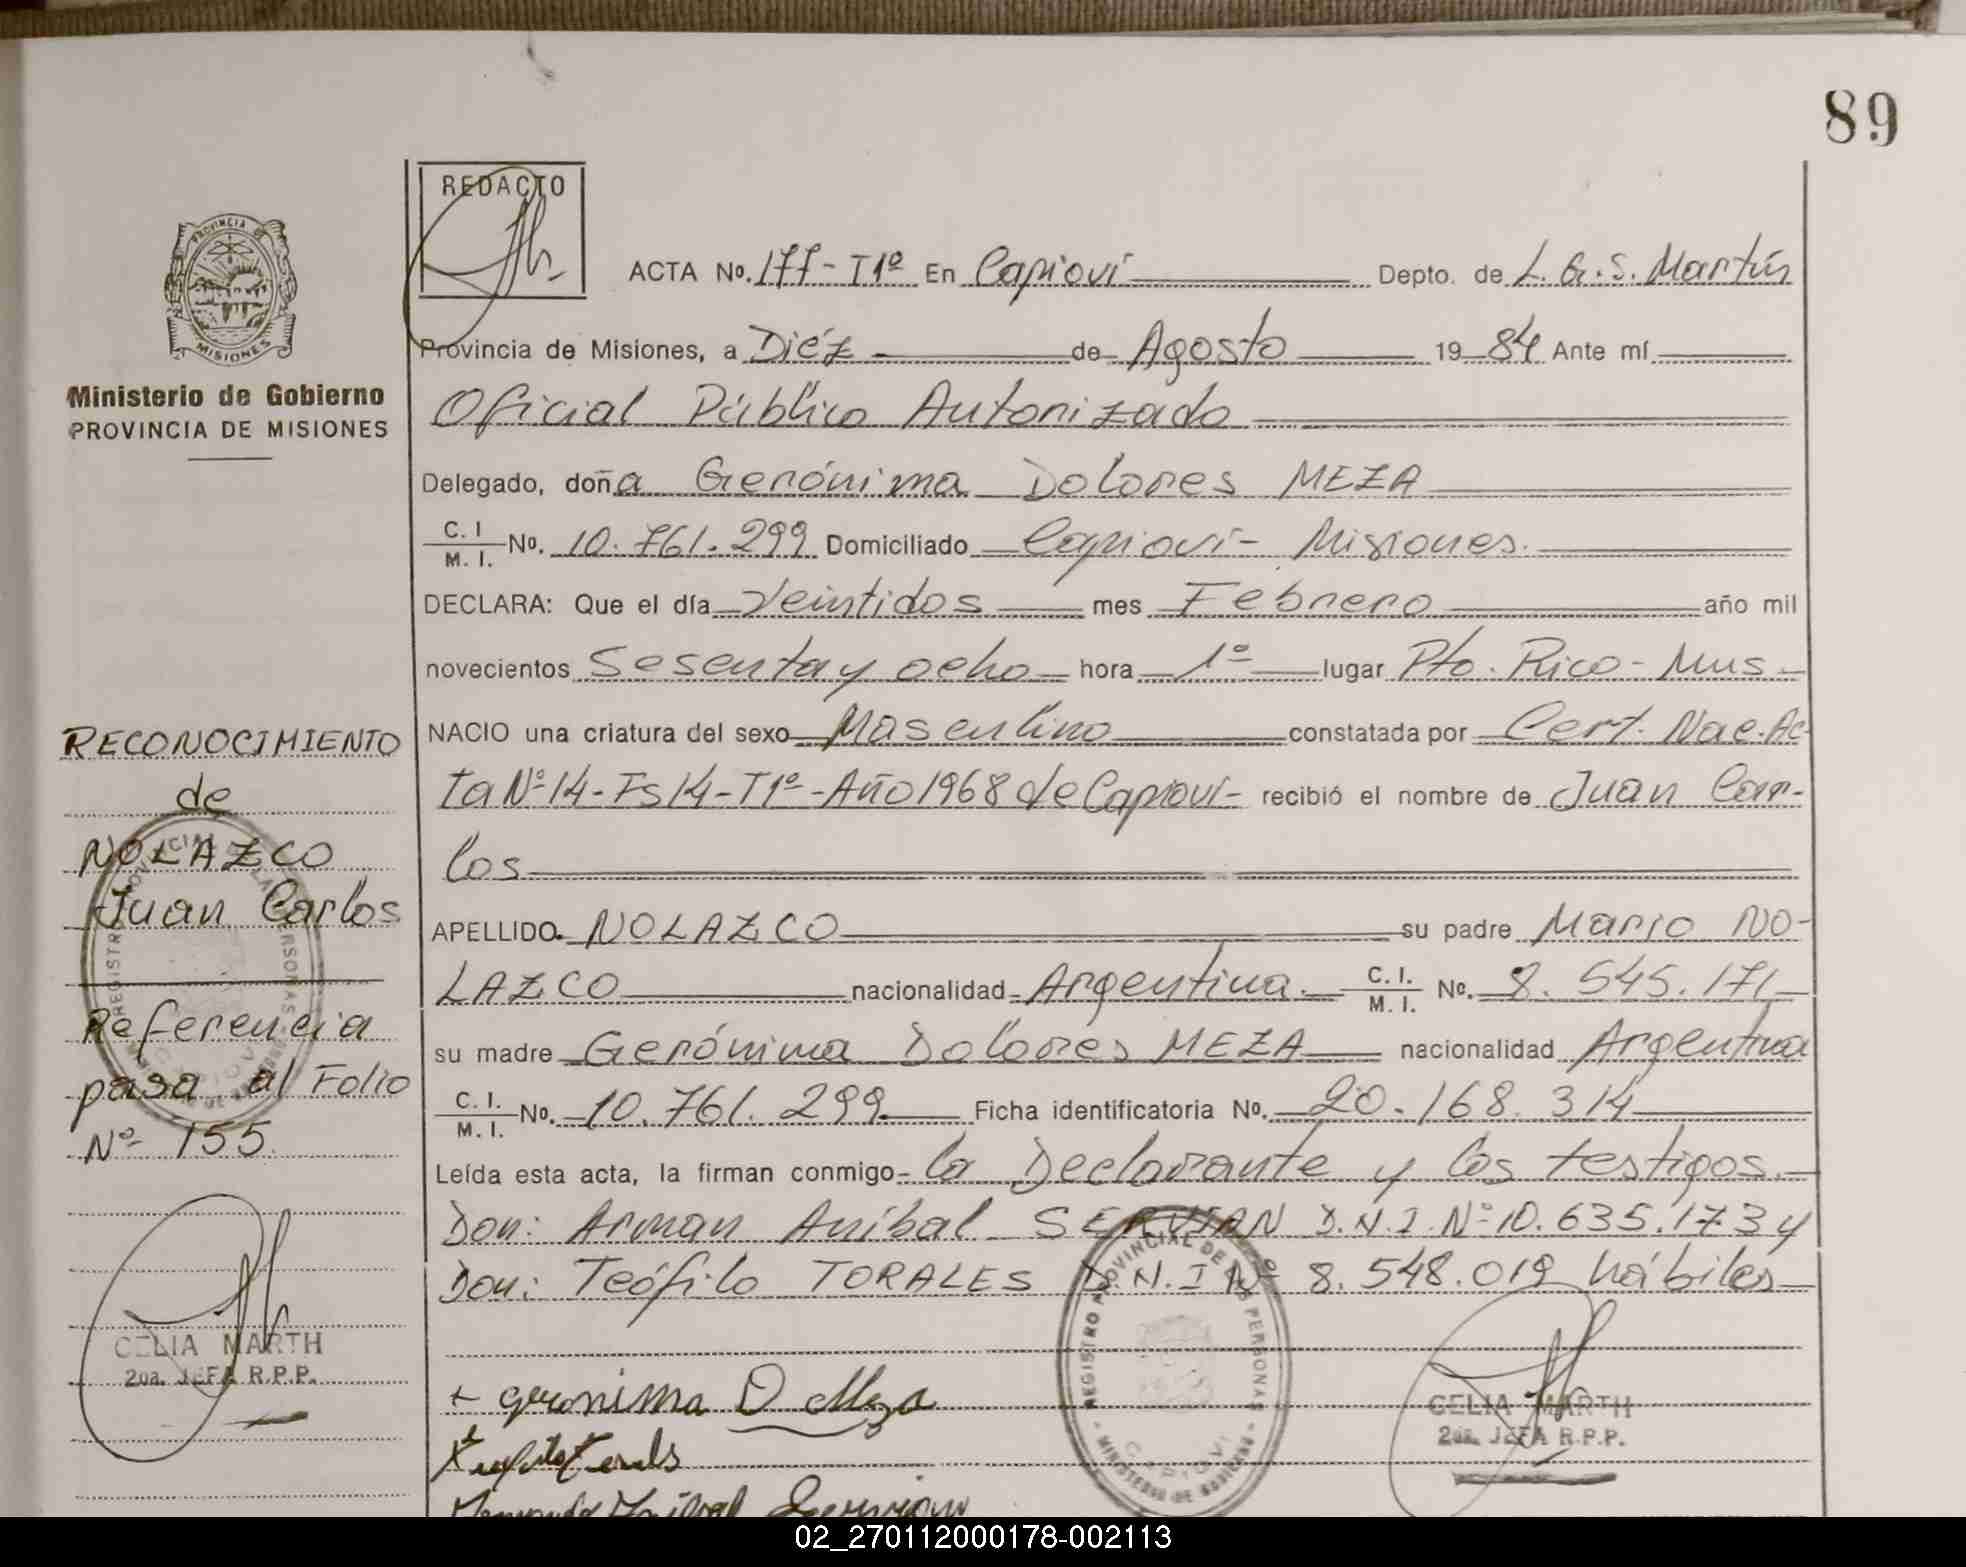 89
REDACTO
ACTA No. 177-T1º En Capioví Depto. de L. G. S. Martín
Provincia de Misiones, a Diéz de Agosto 1984 Ante mí
Oficial Público Autorizado
Delegado, doña Gerónima Dolores MEZA
C. I
M. I. No. 10.761.299 Domiciliado Capioví- Misiones.
DECLARA: Que el día Veintidos mes Febrero año mil
novecientos Sesenta y ocho hora 1º lugar Pto. Rico- Mns-
NACIO una criatura del sexo Masculino constatada por Cert. Nac. Ac-
ta Nº 14- Fs 14- T1º- Año 1968 de Capioví- recibió el nombre de Juan Car-
los
APELLIDO. NOLAZCO su padre Mario NO-
LAZCO nacionalidad Argentina. C. I.
M. I. No. 8.545.171
su madre Gerónima Dolores MEZA nacionalidad Argentina
C. I.
M. I. No. 10.761.299 Ficha identificatoria No. 20.168.314
Leída esta acta, la firman conmigo- la Declarante y los testigos.
Don: Arman Aníbal SERVIAN D.N.I. Nº 10.635.173 y
Don: Teófilo TORALES D.N.I Nº 8.548.019 hábiles
Geronima D Meza
CELIA MARTH
2da. JEFA R.P.P.
REGISTRO PROVINCIAL DE LAS PERSONAS
MINISTERIO DE GOBIERNO
CAPIOVI
PROVINCIA DE
MISIONES
Ministerio de Gobierno
PROVINCIA DE MISIONES
RECONOCIMIENTO
de
NOLAZCO
Juan Carlos
Referencia
pasa al Folio
Nº 155
CELIA MARTH
2da. JEFA R.P.P.
02_270112000178-002113